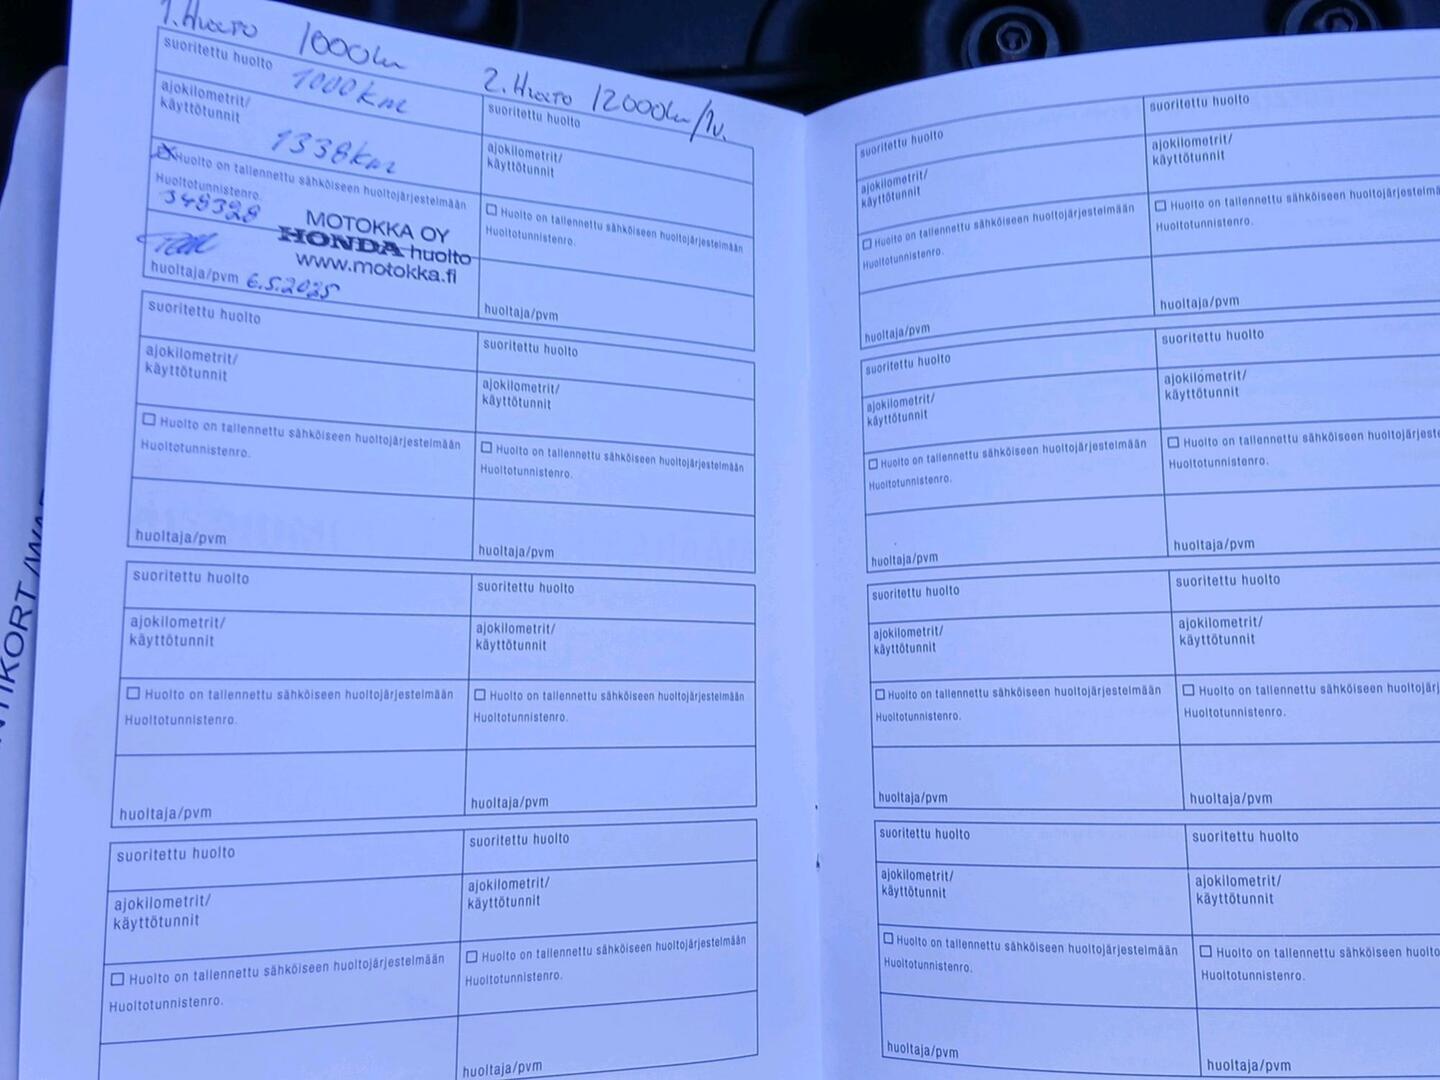 1. Huolto 1000km
2. Huolto 12000km/1v.
suoritettu huolto
1000km
ajokilometrit/
käyttötunnit
1338km
Huolto on tallennettu sähköiseen huoltojärjestelmään
Huoltotunnistenro.
348328
MOTOKKA OY
HONDA huolto
www.motokka.fi
huoltaja/pvm 6.5.2025
suoritettu huolto
ajokilometrit/
käyttötunnit
Huolto on tallennettu sähköiseen huoltojärjestelmään
Huoltotunnistenro.
huoltaja/pvm
suoritettu huolto
ajokilometrit/
käyttötunnit
Huolto on tallennettu sähköiseen huoltojärjestelmään
Huoltotunnistenro.
huoltaja/pvm
suoritettu huolto
ajokilometrit/
käyttötunnit
Huolto on tallennettu sähköiseen huoltojärjestelmään
Huoltotunnistenro.
huoltaja/pvm
suoritettu huolto
ajokilometrit/
käyttötunnit
Huolto on tallennettu sähköiseen huoltojärjestelmään
Huoltotunnistenro.
huoltaja/pvm
suoritettu huolto
ajokilometrit/
käyttötunnit
Huolto on tallennettu sähköiseen huoltojärjestelmään
Huoltotunnistenro.
huoltaja/pvm
suoritettu huolto
ajokilometrit/
käyttötunnit
Huolto on tallennettu sähköiseen huoltojärjestelmään
Huoltotunnistenro.
suoritettu huolto
ajokilometrit/
käyttötunnit
Huolto on tallennettu sähköiseen huoltojärjestelmään
Huoltotunnistenro.
huoltaja/pvm
suoritettu huolto
ajokilometrit/
käyttötunnit
Huolto on tallennettu sähköiseen huoltojärjestelmään
Huoltotunnistenro.
huoltaja/pvm
suoritettu huolto
ajokilometrit/
käyttötunnit
Huolto on tallennettu sähköiseen huoltojärjestelmä
Huoltotunnistenro.
huoltaja/pvm
suoritettu huolto
ajokilometrit/
käyttötunnit
Huolto on tallennettu sähköiseen huoltojärjestelmään
Huoltotunnistenro.
huoltaja/pvm
suoritettu huolto
ajokilometrit/
käyttötunnit
Huolto on tallennettu sähköiseen huoltojärjeste
Huoltotunnistenro.
huoltaja/pvm
suoritettu huolto
ajokilometrit/
käyttötunnit
Huolto on tallennettu sähköiseen huoltojärjestelmään
Huoltotunnistenro.
huoltaja/pvm
suoritettu huolto
ajokilometrit/
käyttötunnit
Huolto on tallennettu sähköiseen huoltojärj
Huoltotunnistenro.
huoltaja/pvm
suoritettu huolto
ajokilometrit/
käyttötunnit
Huolto on tallennettu sähköiseen huoltojärjestelmään
Huoltotunnistenro.
huoltaja/pvm
suoritettu huolto
ajokilometrit/
käyttötunnit
Huolto on tallennettu sähköiseen huolto
Huoltotunnistenro.
huoltaja/pvm